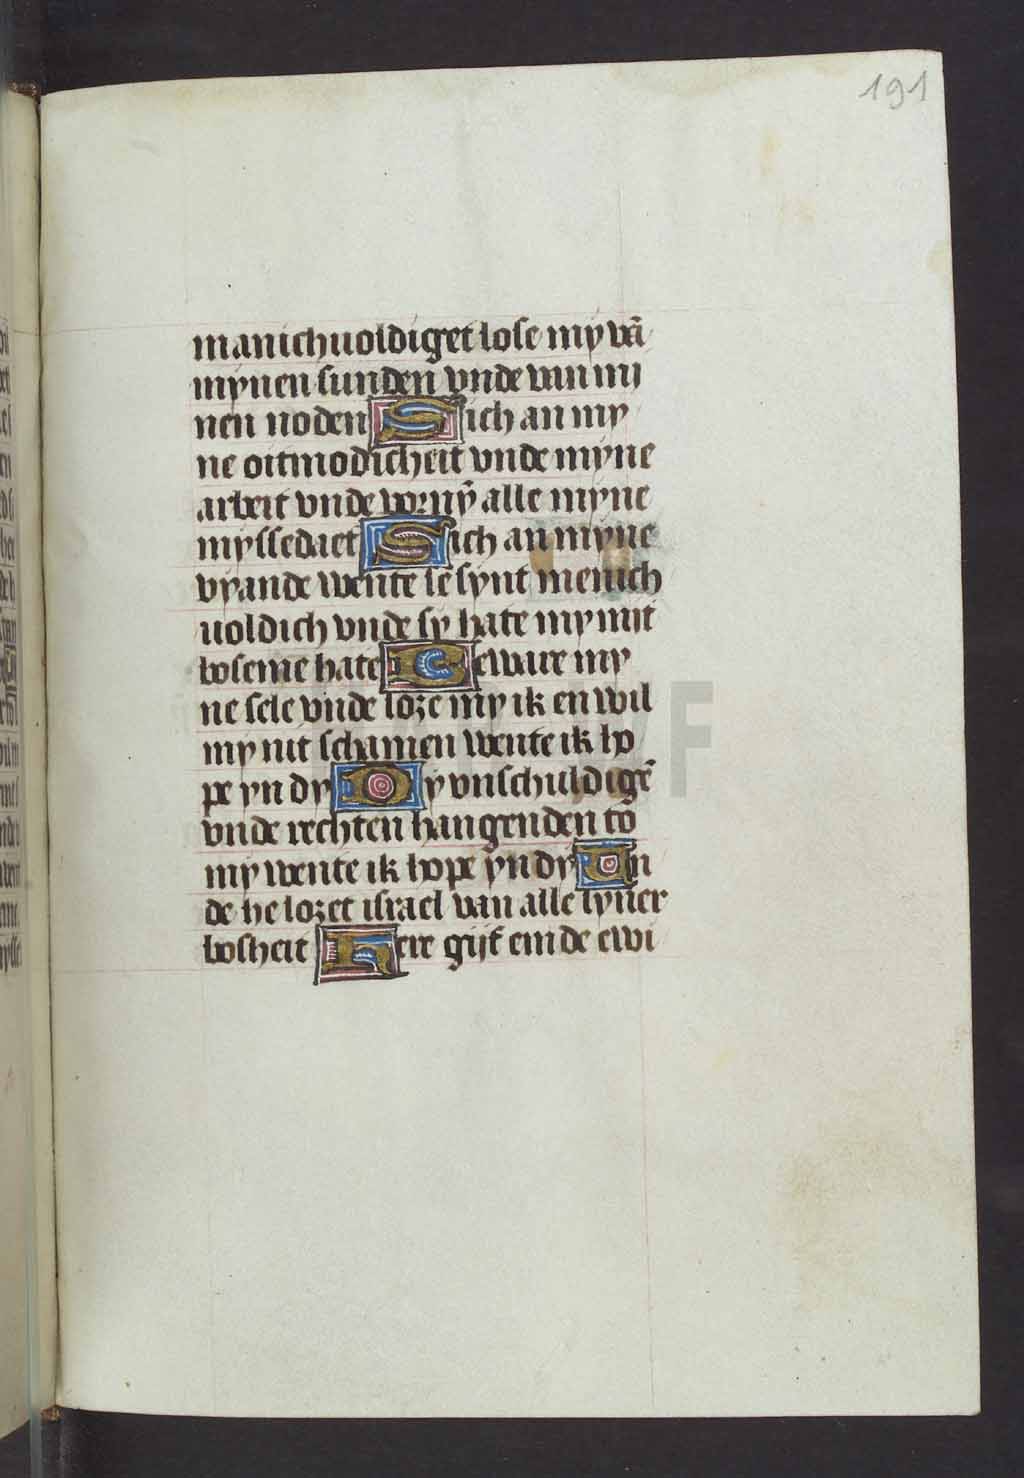 191
manichuoldiget lose my vā
mynen sunden vnde van mi
nen noden Sich an my
ne oitmodicheit vnde myne
arbeit vnde vorny̅ alle myne
myssedaet Sich an myne
vyande wente se synt menich
uoldich vnde sy hate my mit
boseme hate Beware my
ne sele vnde loze my ik en wil
my nit schamen wente ik ho
pe yn dy Dy vnschuldigē
vnde rechten hangenden to
my wente ik hope yn dy Un
de he lozet israel van alle syner
bosheit Here gijf em de ewi